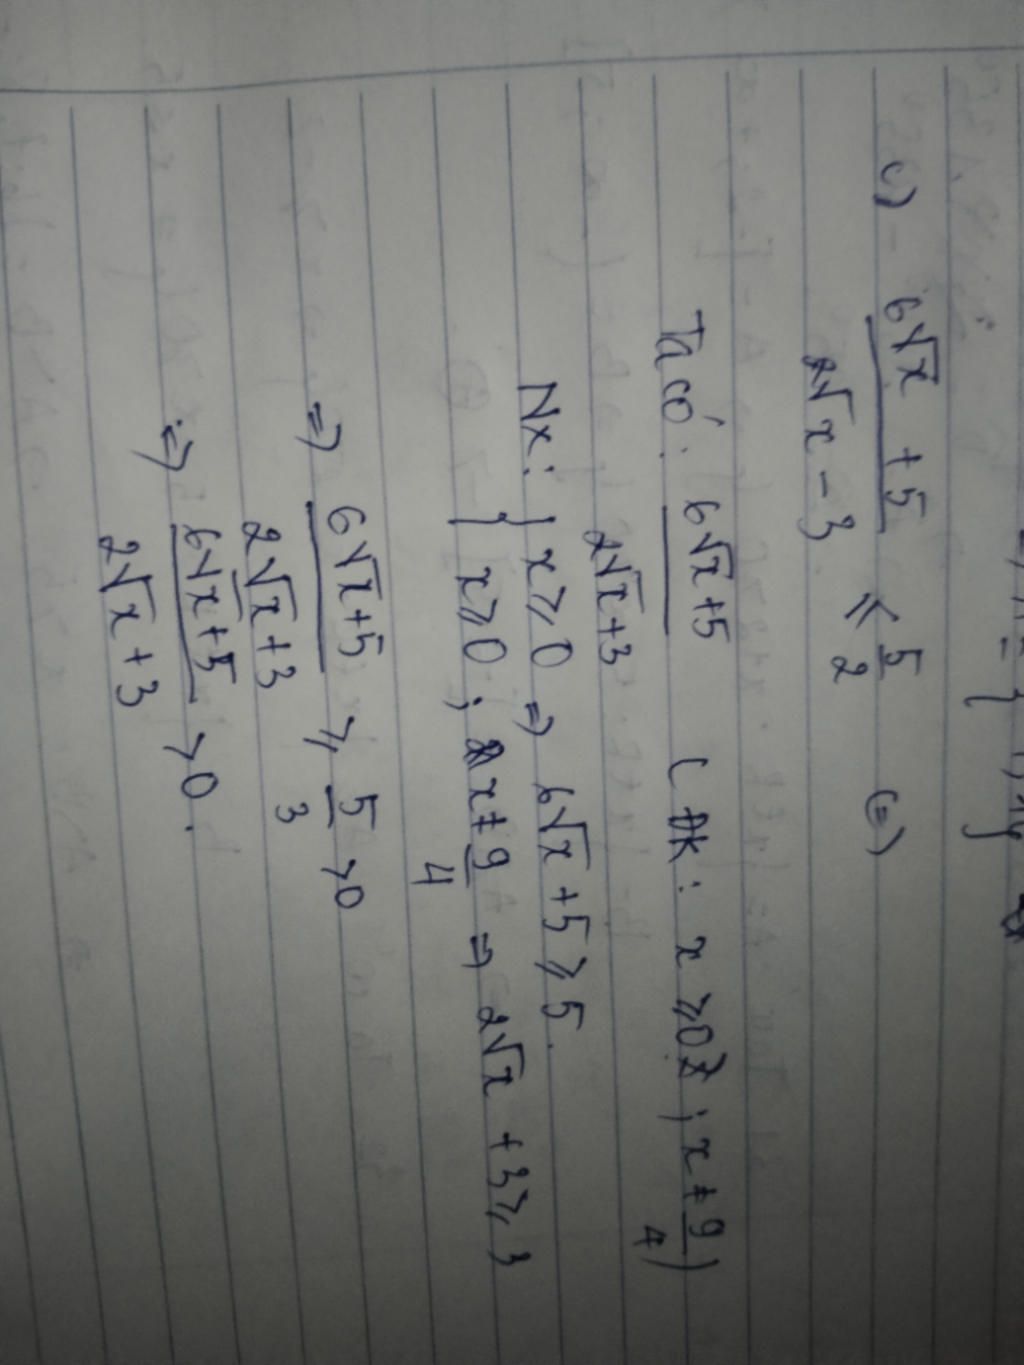 c) 6√x + 5 / 2√x - 3 ≤ 5/2 (=)
Ta có: 6√x+5 / 2√x+3 ( ĐK: x ≥ 0 ; x ≠ 9/4 )
Nx: { x ≥ 0 => 6√x + 5 ≥ 5.
{ x ≥ 0 ; x ≠ 9/4 => 2√x + 3 ≥ 3
=> 6√x+5 / 2√x+3 ≥ 5/3 > 0
=> 6√x+5 / 2√x + 3 > 0.